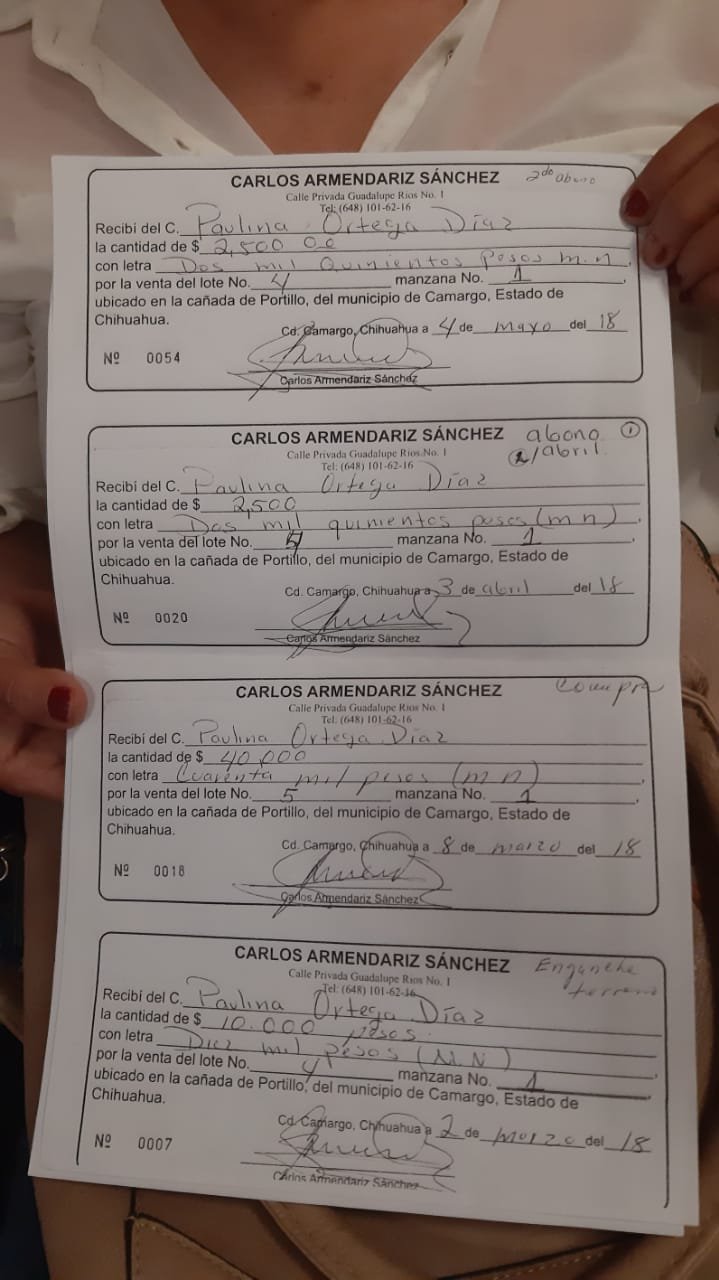 CARLOS ARMENDARIZ SÁNCHEZ 2do abono
Calle Privada Guadalupe Rios No. 1
Tel: (648) 101-62-16
Recibí del C. Paulina Ortega Díaz
la cantidad de $ 2,500 00
con letra Dos mil Quinientos pesos m.n
por la venta del lote No. 4 manzana No. 1
ubicado en la cañada de Portillo, del municipio de Camargo, Estado de
Chihuahua.
Cd. Camargo, Chihuahua a 4 de mayo del 18
Nº 0054
Carlos Armendariz Sánchez
CARLOS ARMENDARIZ SÁNCHEZ abono 1
Calle Privada Guadalupe Rios No. 1 /abril.
Tel: (648) 101-62-16
Recibí del C. Paulina Ortega Díaz
la cantidad de $ 2,500
con letra Dos mil quinientos pesos (m n)
por la venta del lote No. manzana No. 1
ubicado en la cañada de Portillo, del municipio de Camargo, Estado de
Chihuahua.
Cd. Camargo, Chihuahua a 3 de abril del 18
Nº 0020
Carlos Armendariz Sánchez
CARLOS ARMENDARIZ SÁNCHEZ Compra
Calle Privada Guadalupe Rios No. 1
Tel: (648) 101-62-16
Recibí del C. Paulina Ortega Díaz
la cantidad de $ 40,000
con letra Cuarenta mil pesos (m n)
por la venta del lote No. 5 manzana No. 1
ubicado en la cañada de Portillo, del municipio de Camargo, Estado de
Chihuahua.
Cd. Camargo, Chihuahua a 8 de marzo del 18
Nº 0018
Carlos Armendariz Sánchez
CARLOS ARMENDARIZ SÁNCHEZ Enganche
Calle Privada Guadalupe Rios No. 1 terreno
Tel: (648) 101-62-16
Recibí del C. Paulina Ortega Díaz
la cantidad de $ 10.000 pesos.
con letra Diez mil pesos (M.N)
por la venta del lote No. 4 manzana No. 1
ubicado en la cañada de Portillo, del municipio de Camargo, Estado de
Chihuahua.
Cd. Camargo, Chihuahua a 2 de marzo del 18
Nº 0007
Carlos Armendariz Sánchez